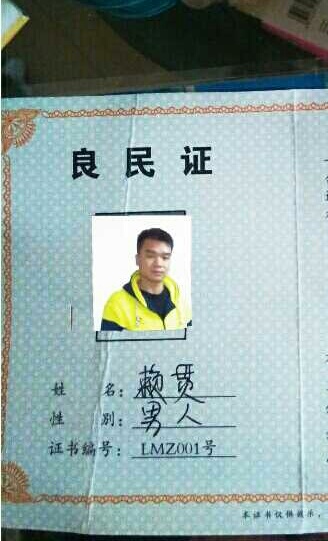 良民证
姓 名：赖贯
性 别：男人
证书编号：LMZ001号
本证书仅供娱乐，